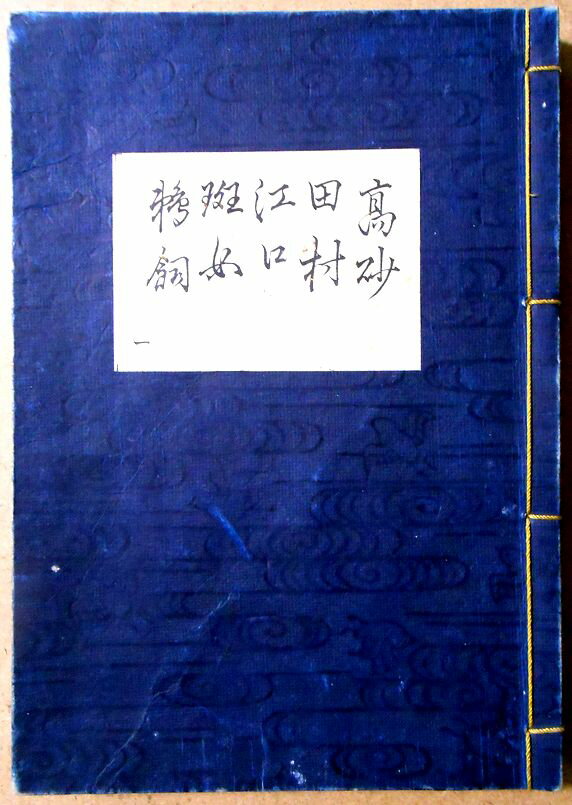 高砂
田村
江口
班女
鵜飼
一